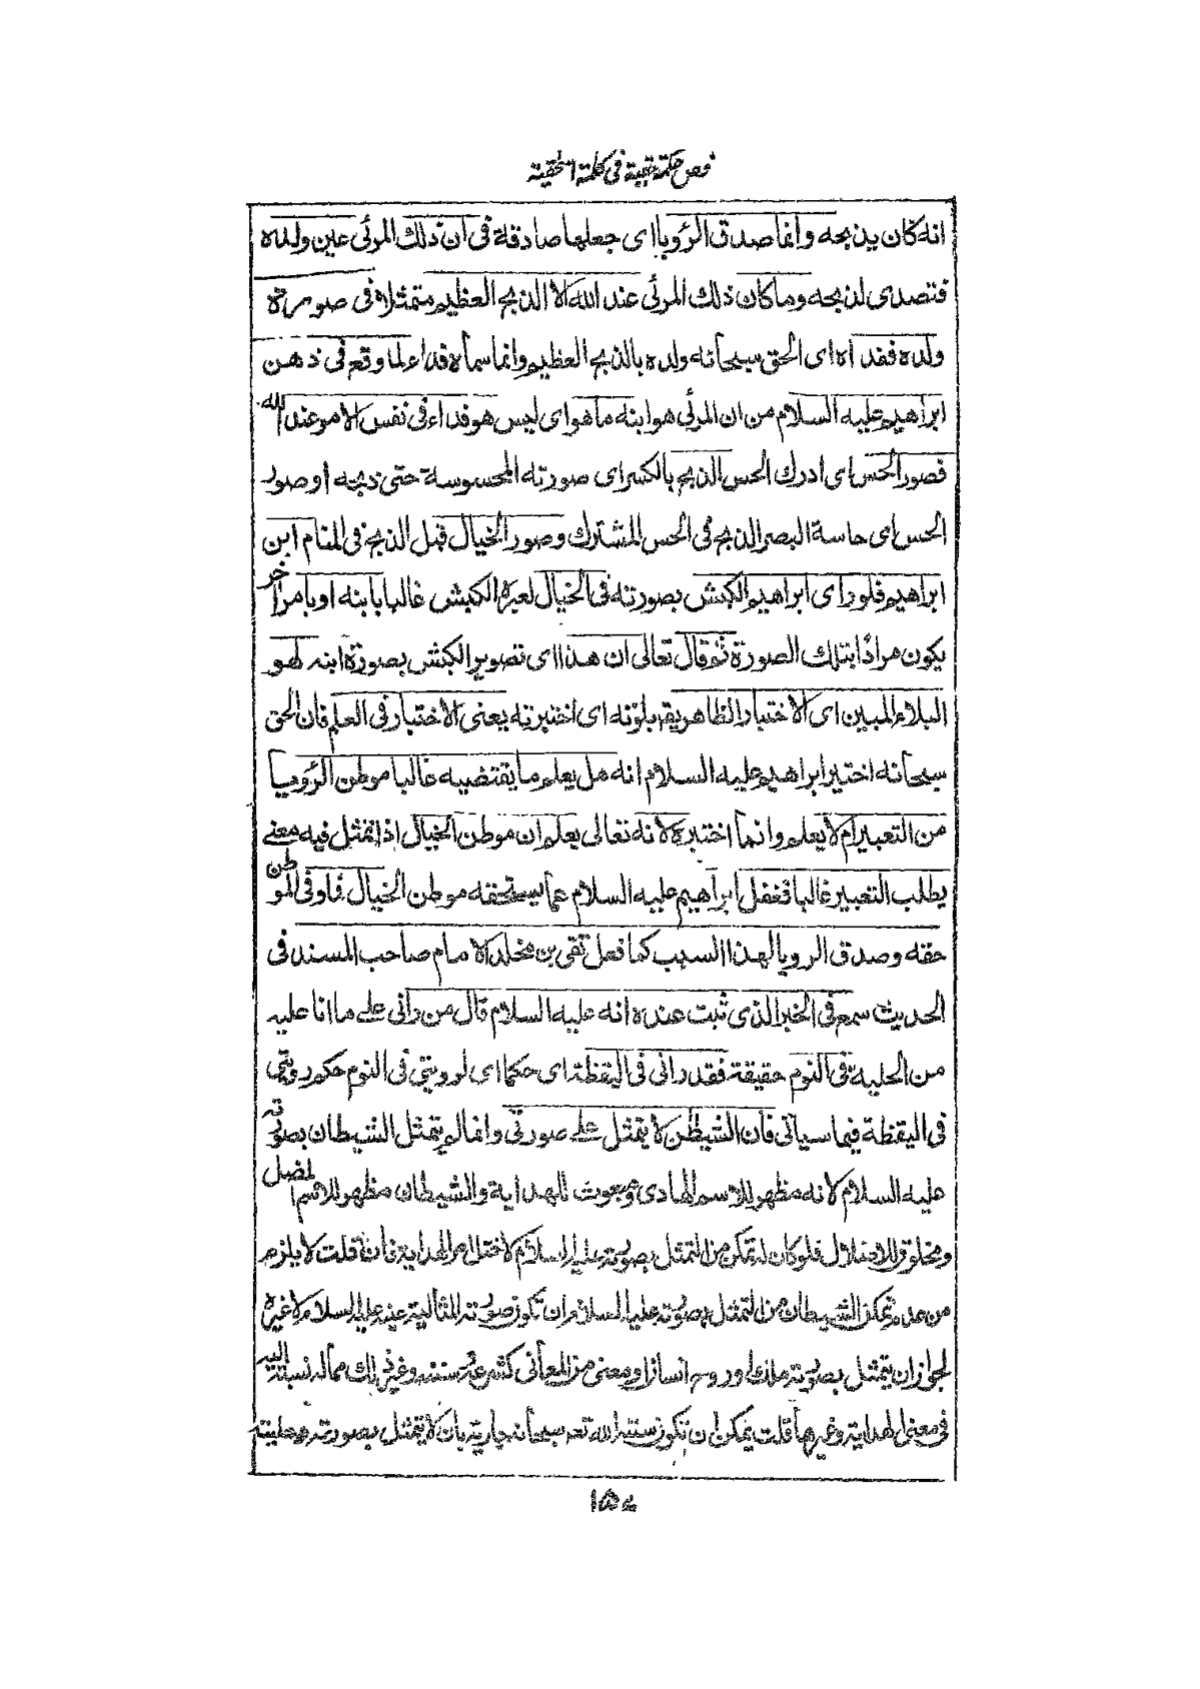 فص حكمة حقية في كلمة اسحقية
انه كان يذبحه وانما صدق الرؤيا اى جعلها صادقة فى ان ذلك المرئى عين ولده
فتصدى لذبحه وما كان ذلك المرئى عند الله الا الذبح العظيم متمثلا فى صورة
ولده ففداه اى الحق سبحانه ولده بالذبح العظيم وانما سماه فداء لما وقع فى ذهن
ابراهيم عليه السلام من ان المرئى هو ابنه ما هو اى ليس هو فداء فى نفس الامر عند الله
فصور الحس اى ادرك الحس الذبح بالكسر اى صورته المحسوسة حتى ذبحه او صور
الحس اى حاسة البصر الذبح فى الحس المشترك وصور الخيال قبل الذبح فى المنام ابن
ابراهيم فلو راى ابراهيم الكبش بصورته فى الخيال لعبره الكبش غالبا بابنه او بامر اخر
يكون مرادا بتلك الصورة ثم قال تعالى ان هذا اى تصوير الكبش بصورة ابنه لهو
البلاء المبين اى الاختبار الظاهر يقال بلوته اى اختبرته يعنى الاختبار فى العلم فان الحق
سبحانه اختبر ابراهيم عليه السلام انه هل يعلم ما يقتضيه غالبا موطن الرؤيا
من التعبير ام لا يعلم وانما اختبره لانه تعالى يعلم ان موطن الخيال اذا تمثل فيه معنے
يطلب التعبير غالبا فغفل ابراهيم عليه السلام عما يستحقه موطن الخيال فاوفى الموطن
حقه وصدق الرويا لهذا السبب كما فعل تقى بن مخلد الامام صاحب المسند فى
الحديث سمع فى الخبر الذى ثبت عنده انه عليه السلام قال من رانى علے ما انا عليه
من الحلية فى النوم حقيقة فقد رانى فى اليقظة اى حكما اى لرويتى فى النوم حكم رويتى
فى اليقظة فيما سياتى فان الشيطن لا يتمثل علے صورتى وانما لم يتمثل الشيطان بصورته
عليه السلام لانه مظهر للاسم الهادى ومبعوث للهداية والشيطان مظهر للاسم المضل
ومخلوق للاضلال فلو كان له تمكن من التمثل بصورته عليه السلام لاختل امر الهداية فان قلت لا يلزم
من عدم تمكن الشيطان من التمثل بصورته عليه السلام ان تكون صورته المثالية عينه عليه السلام لا غيره
لجواز ان يتمثل بصورته ملك او روح انسان او معنى من المعانى كشرعه وسننه وغير ذلك مما له نسبة اليه
فى معنى الهداية وغيرها قلت يمكن ان تكون سنة الله تعه سبحانه جارية بان لا يتمثل بصورته وحليته